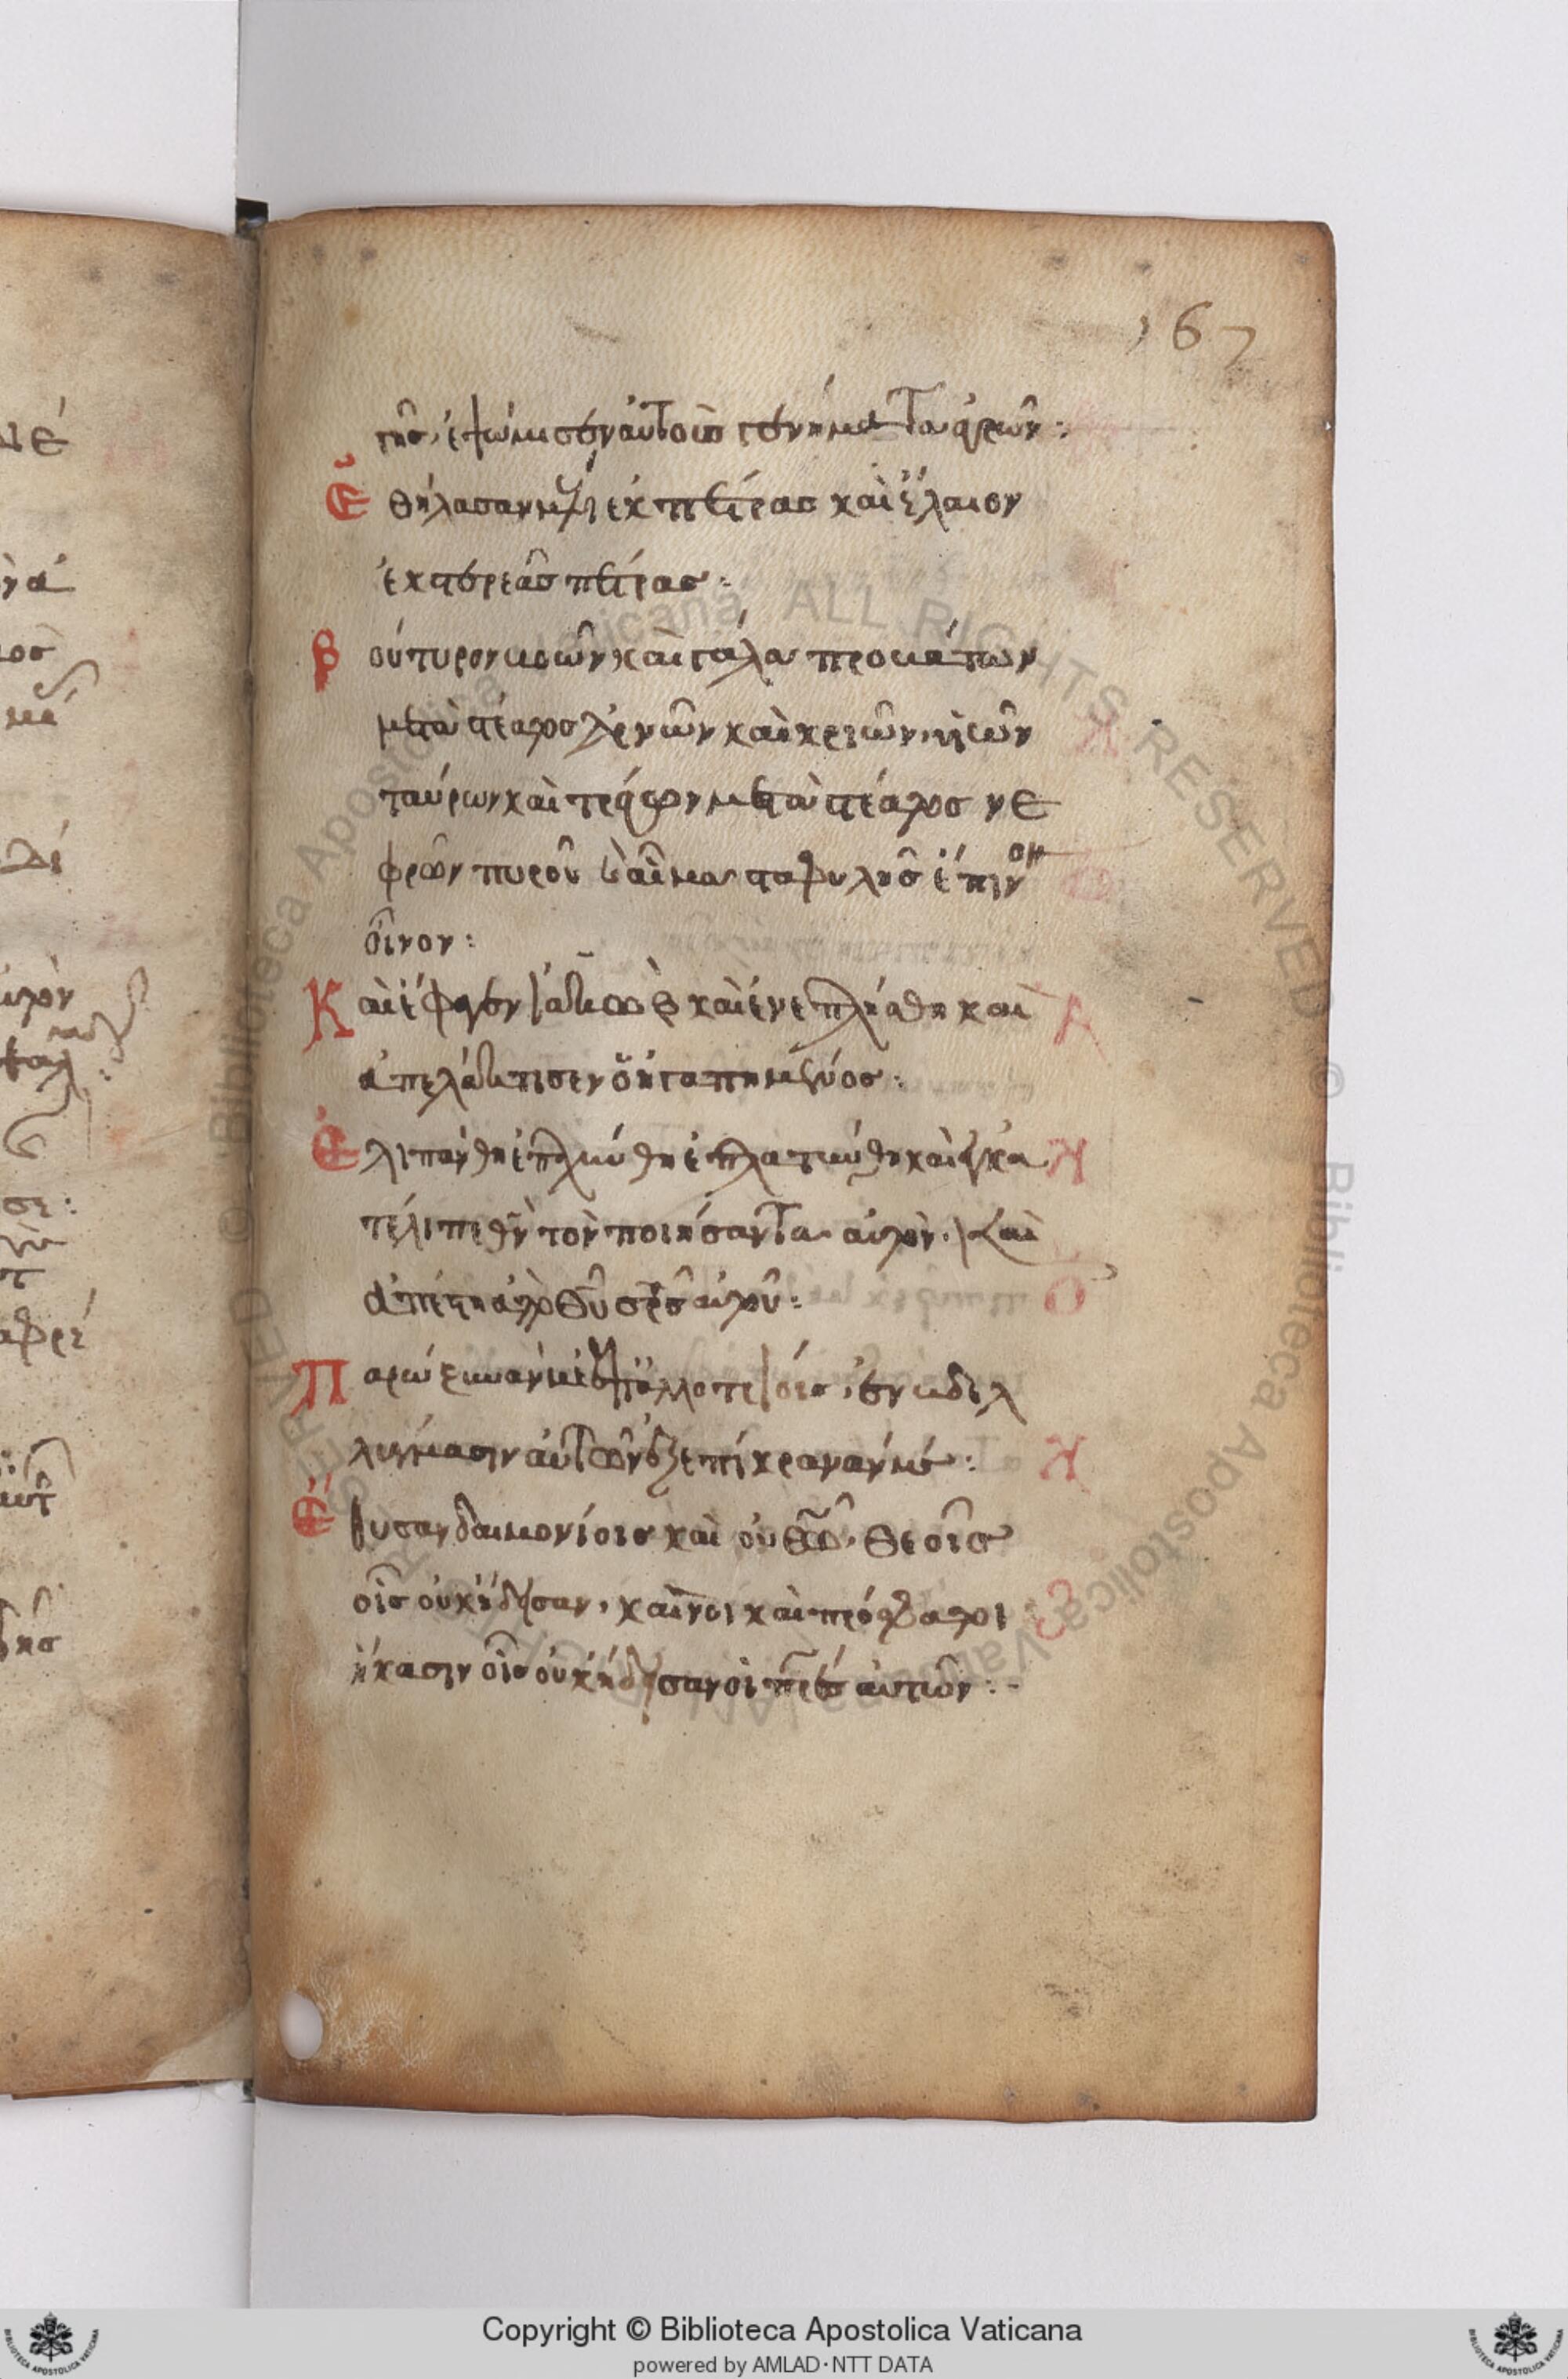 167
γῆς· ἐψώμισεν αὐτοὺς γενήματα ἀγρῶν:
Ἐθήλασαν μέλι ἐκ πέτρας καὶ ἔλαιον
ἐκ στερεᾶς πέτρας:
Βούτυρον βοῶν καὶ γάλα προβάτων
μετὰ στέατος ἀρνῶν καὶ κριῶν, υἱῶν
ταύρων καὶ τράγων μετὰ στέατος νε
φρῶν πυροῦ καὶ αἷμα σταφυλῆς ἔπινον
οἶνον:
Καὶ ἔφαγεν Ἰακὼβ καὶ ἐνεπλήσθη καὶ
ἀπελάκτισεν ὁ ἠγαπημένος:
Ἐλιπάνθη ἐπαχύνθη ἐπλατύνθη καὶ ἐγκα
τέλιπε θν τὸν ποιήσαντα αὐτὸν· καὶ
ἀπέστη ἀπὸ θυ σρς αὐτοῦ:
Παρώξυνάν με ἐπ' ἀλλοτρίοις, ἐν βδελ
λύγμασιν αὐτῶν ἐξεπίκρανάν με:
Ἔθυσαν δαιμονίοις καὶ οὐ θω· θεοῖς
οἷς οὐκ ᾔδεισαν, καινοὶ καὶ πρόσφατοι
ἥκασιν οἷς οὐκ ᾔδεισαν οἱ πρες αὐτῶν:
Copyright © Biblioteca Apostolica Vaticana
powered by AMLAD·NTT DATA